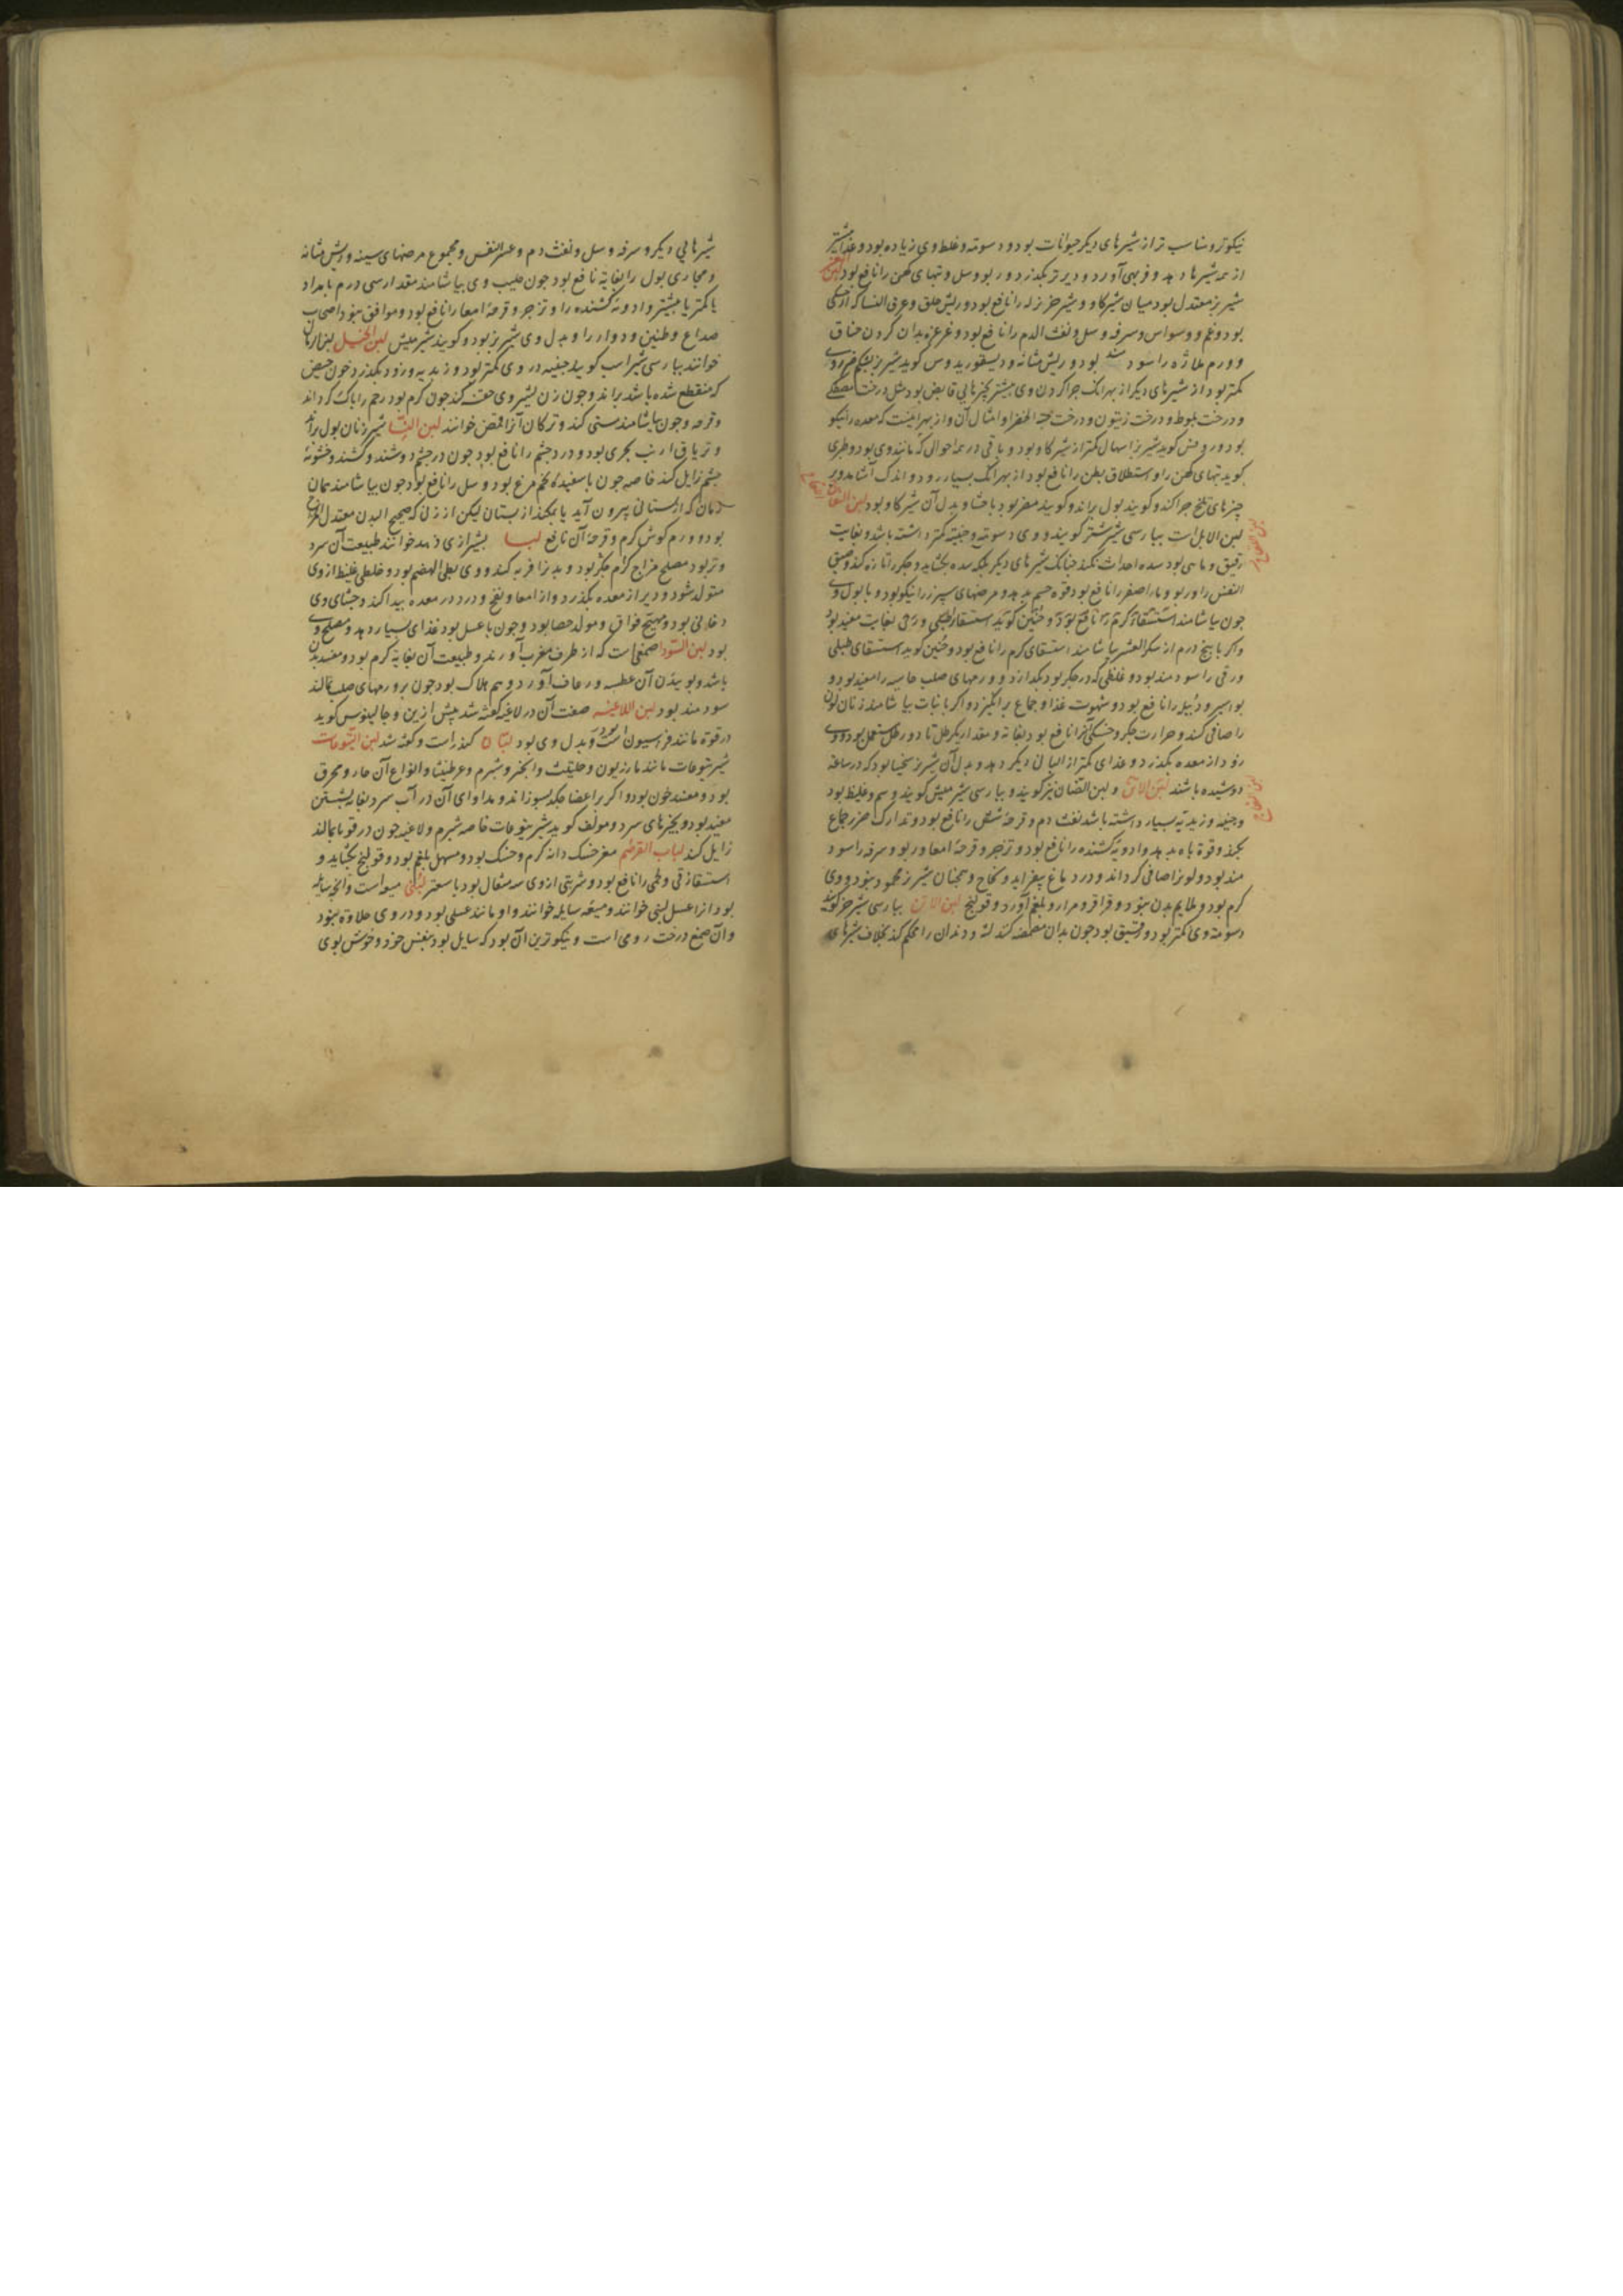 نیکوتر و مناسب تر از شیرهای دیگر حیوانات بود و دسومته و غلظ وی زیاده بود و غذا بیشتر
از همه شیرها دهد و فربهی آورد و دیرتر بگذرد و ربو و سل و تبهای کهن را نافع بود لبن
شیر بز معتدل بود میان شیر کاو و شیر خر نزله را نافع بود و ریش حلق و عرق النسا که از خشکی
بود و غم و وسواس و سرفه و سل و نفث الدم را نافع بود و غرغره بدان کردن خناق
و ورم ملازه را سود بود و ریش مثانه و دیسقوریدوس کوید شیر بز بشکم ضرر وی
کمتر بود از شیرهای دیکر از بهر آنک چرا کردن وی بیشتر بچیزهایی قابض بود مثل درخت مصطکی
و درخت بلوط و درخت زیتون و درخت حبة الخضرا و امثال آن و از بهر اینست که معده را نیکو
بود و روفس کوید شیر بز اسهال کمتر از شیر کاو بود و باقی در همه احوالی که مانند وی بود و طبری
کوید تبهای کهن را و استطلاق بطن را نافع بود از بهر آنک بسیار رود و اندک آشامد و بر
چیزهای تلخ چرا کند و کویند بول براند و کویند مضر بود باحشا و بدل آن شیر کاو بود لبن اللقاح
لبن الابل است بپارسی شیر شتر کویند و وی دسومته و جبنیته کمتر داشته باشد و بغایت
رقیق و مایی بود سده احداث نکند چنانک شیرهای دیکر بلکه سده بکشاید و جکر را تازه کند و ضیق
النفس را و ربو و ماء اصفر را نافع بود و قوه جسم بدهد و مرضهای سپرز را نیکو بود و با بول وی
چون بیاشامند استسقاء کرم را نافع بود و حنین کوید استسقاء طبلی و زقی بغایت مفید بود
و اکر با پنج درم از سکر العشر بیاشامند استسقای کرم را نافع بود و حنین کوید استسقای طبلی
و زقی را سودمند بود و غلظی که در جکر بود بکدازد و ورمهای صلب جاسیه را مفید بود و
بواسیر و دبیله را نافع بود و شهوت غذا و جماع برانکیزد و اکر با نبات بیاشامند زنان لون
را صافی کند و حرارت جکر و خشکی آنرا نافع بود بغایة و مقدار یکرطل تا دو رطل مستعمل بود و وی
زود از معده بکذرد و غذای کمتر از البانی دیکر دهد و بدل آن شیر بز بود که در ساعة
دوشیده باشند لبن و لبن الضان نیز کویند و بپارسی شیر میش کویند و سم و غلیظ بود
و جبنیه و زبدیه بسیار داشته باشد نفث دم و قرحهٔ شش را نافع بود و تدارک ضرر جماع
بکند و قوة باه بدهد و ادویهٔ کشنده را نافع بود و زحیر و قرحهٔ امعا و ربو و سرفه را سود
مند بود و لون را صافی کرداند و در دماغ بیفزاید و نخاع و همچنان شیر بز محمود نبود و وی
کرم بود و ملایم بدن نبود و قراقر و مرار و بلغم آورد و قولنج لبن الاتن بپارسی شیر خر کویند
دسومته وی کمتر بود و رقیق بود چون بدان مضمضه کنند لثه و دندان را محکم کند بخلاف شیرهای
شیرهایی دیکر و سرفه و سل و نفث دم و عسر النفس و مجموع مرضهای سینه و ریش مثانه
و مجاری بول را بغایة نافع بود چون حلیب وی بیاشامند مقدار سی درم بامداد
یا کمتر یا بیشتر و ادویهٔ کشنده را و زحیر و قرحهٔ امعا را نافع بود و موافق نبود اصحاب
صداع و طنین و دوار را و بدل وی شیر بز بود و کویند شیر میش لبن الخیل لبن الرماک
خوانند بپارسی شیر اسب کویند جبنیه در وی کمتر بود و زبدیه و زود بکذرد خون حیض
که منقطع شده باشد براند و چون زن بشیر وی حقنه کند چون کرم بود رحم را پاک کرداند
و قرحه و چون بیاشامند مستی کند و ترکان آنرا قمیز خوانند لبن النسا شیر زنان بول براند
و تریاق ارنب بحری بود و درد چشم را نافع بود چون در چشم دوشند و کشند و خشونة
چشم زایل کند خاصه چون با سفیدهٔ تخم مرغ بود و سل را نافع بود چون بیاشامند همان
زمان که از پستان بیرون آید یا بمکند از پستان لیکن از زنی که صحیح البدن معتدل المزاج
بود و ورم کوش کرم و قرحهٔ آن نافع لبا بشیرازی فهه خوانند طبیعت آن سرد
و تر بود مصلح مزاج کرم جکر بود و بدن را فربه کند و وی بطی الهضم بود و خلطی غلیظ از وی
متولد شود و دیر از معده بکذرد و از امعا و نفخ و درد در معده پیدا کند و جشای وی
دخانی بود و مهیج فواق و مولد حصا بود و چون با عسل بود غذای بسیار دهد و مصلح وی
بود لبن السودا صمغی است که از طرف مغرب آورند و طبیعت آن بغایة کرم بود و مفسد بدن
باشد و بوییدن آن عطسه و رعاف آورد و بیم هلاک بود چون بر ورمهای صلب مالند
سودمند بود لبن اللاعیه صفت آن در لاعیه کفته شد پیش ازین و جالینوس کوید
در قوة مانند فراسیون است و بدل وی بود لبان کندر است و کفته شد لبن الیتوعات
شیر یتوعات مانند مازریون و حلتیت و انجیر و شبرم و عرطنیثا و انواع آن حار و محرق
بود و مفسد خون بود و اکر بر اعضا چکد بسوزاند و مداوای آن در آب سرد بغایة نشستن
مفید بود و بچیزهای سرد و مولف کوید شیر یتوعات خاصه شبرم و لاعیه چون در قوبا بمالند
زایل کند لباب القرطم مغز خسک دانه کرم و خشک بود و مسهل بلغم بود و قولنج بکشاید و
استسقاء زقی و لحمی را نافع بود و شربتی از وی سه مثقال بود با سعتر لبنی میعه است و آنچه سایله
بود آنرا عسل لبنی خوانند و میعه سایله خوانند و او مانند عسلی بود و در وی حلاوة نبود
و آن صمغ درخت رومی است و نیکوترین آن بود که سایل بود بنفس خود و خوش بوی